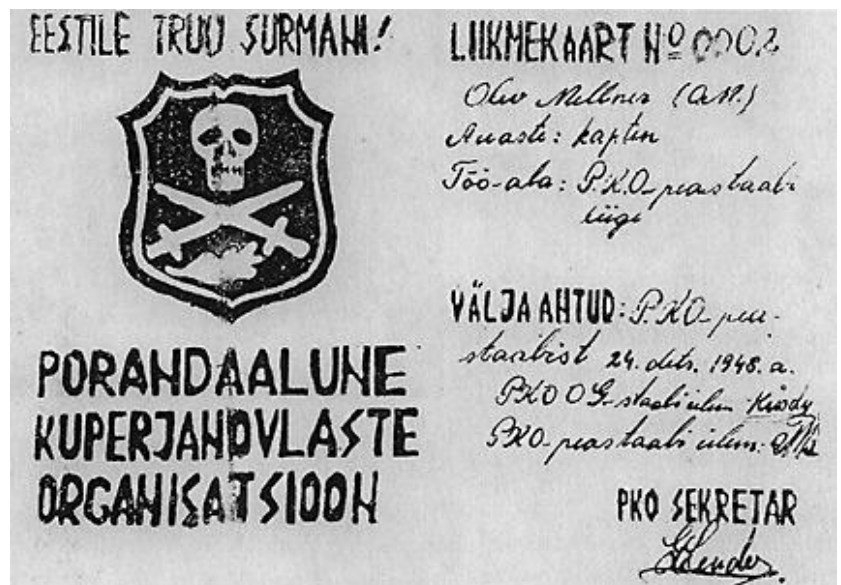 EESTILE TRUU SURMANI!
PORANDAALUNE
KUPERJANOVLASTE
ORGANISATSIOON
LIIKMEKAART № 0002
Olev Mellner (O.M.)
Auaste: kapten
Töö-ala: P.K.O-peastaabi
liige
VÄLJA AHTUD: P.K.O-pea-
staabist 24. dets. 1948. a.
PKO OG-staabi ülem
PKO-peastaabi ülem:
PKO SEKRETAR